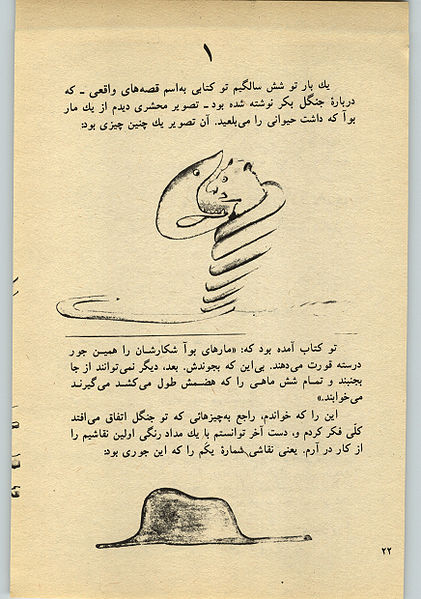 ۱
یك بار تو شش سالگیم تو کتابی به‌اسم قصه‌های واقعی ـ که
دربارهٔ جنگل بکر نوشته شده بود ـ تصویر محشری دیدم از یك مار
بوآ که داشت حیوانی را می‌بلعید. آن تصویر یك چنین چیزی بود:
تو کتاب آمده بود که: «مارهای بوآ شکارشان را همین جور
درسته قورت می‌دهند. بی‌این که بجوندش. بعد، دیگر نمی‌توانند از جا
بجنبند و تمام شش ماهی را که هضمش طول می‌کشد می‌گیرند
می‌خوابند.»
این را که خواندم، راجع به‌چیزهائی که تو جنگل اتفاق می‌افتد
کلّی فکر کردم و، دست آخر توانستم با یك مداد رنگی اولین نقاشیم را
از کار در آرم. یعنی نقاشی شمارهٔ یکم را که این جوری بود:
۲۲